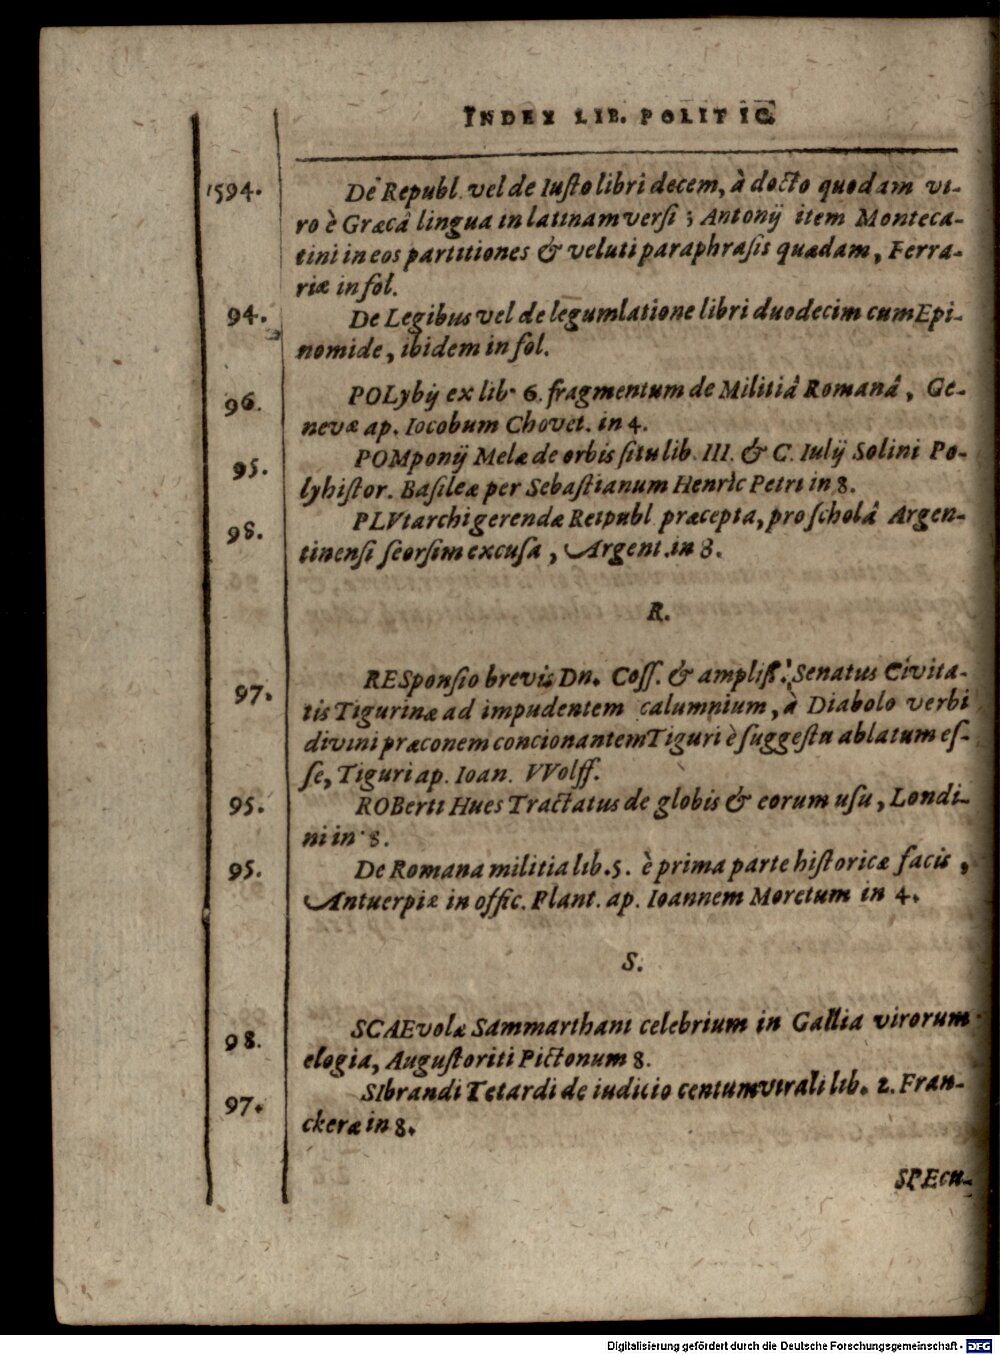 INDEX LIB. POLITIC.
1594. De Republ. vel de Iusto libri decem, à docto quodam vi-
ro è Græcâ lingua in latinam versi; Antonij item Monteca-
tini in eos partitiones & veluti paraphrasis quædam, Ferra-
riæ in fol.
94. De Legibus vel de legumlatione libri duodecim cum Epi-
nomide, ibidem in fol.
96. POLybij ex lib. 6. fragmentum de Militiâ Romanâ, Ge-
nevæ ap. Iocobum Chovet. in 4.
95. POMponij Melæ de orbis situ lib. III. & C. Iulij Solini Po-
lyhistor. Basileæ per Sebastianum Henric Petri in 8.
98. PLVtarchi gerendæ Reipubl. præcepta, pro scholâ Argen-
tinensi seorsim excusa, Argent. in 8.
R.
97. RESponsio brevis Dn. Coss. & ampliss. Senatus Civita-
tis Tigurinæ ad impudentem calumnium, à Diabolo verbi
divini præconem concionantem Tiguri è suggestu ablatum es-
se, Tiguri ap. Ioan. VVolff.
95. ROBerti Hues Tractatus de globis & eorum usu, Londi-
ni in 8.
95. De Romana militia lib. 5. è prima parte historicæ facis,
Antuerpiæ in offic. Plant. ap. Ioannem Moretum in 4.
S.
98. SCAEvolæ Sammarthani celebrium in Gallia virorum
elogia, Augustoriti Pictonum 8.
97. SIbrandi Tetardi de iudicio centumvirali lib. 2. Fran-
ckeræ in 8.
SPEcu-
Digitalisierung gefördert durch die Deutsche Forschungsgemeinschaft - DFG